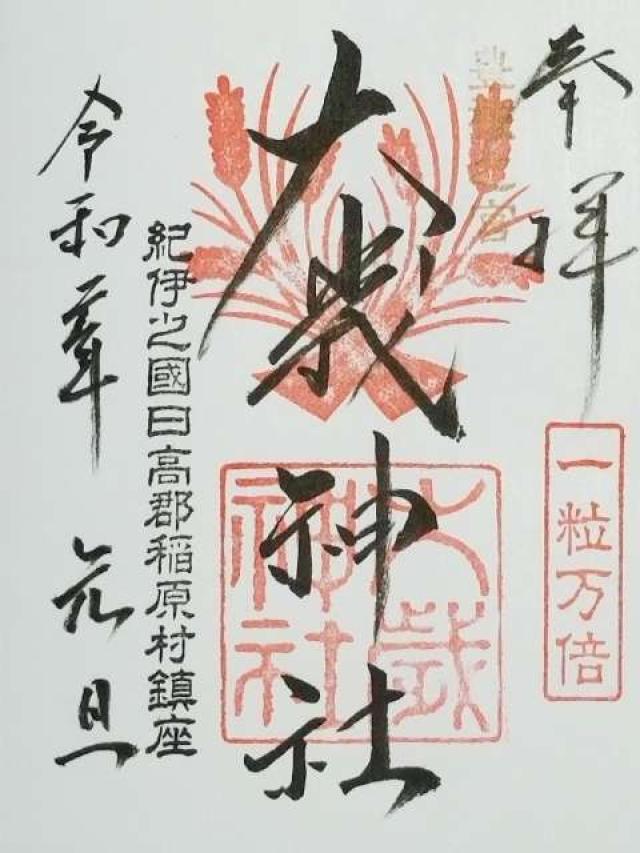 奉拝
一粒万倍
大歳神社
大歳神社
紀伊之國日高郡稲原村鎮座
令和二年 元旦